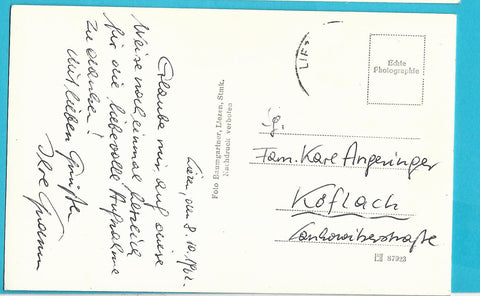 Liezen, den 8. 10. 1962.
Erlaube mir auf diese
Weise noch einmal herzlich
für die liebevolle Aufnahme
zu danken!
Mit lieben Grüße
Ilse
Foto Baumgartner, Liezen, Stmk.
Nachdruck verboten
LIEZ
Echte
Photographie
Fam. Karl Angeringer
Köflach
Lankowitzerstraße
87923